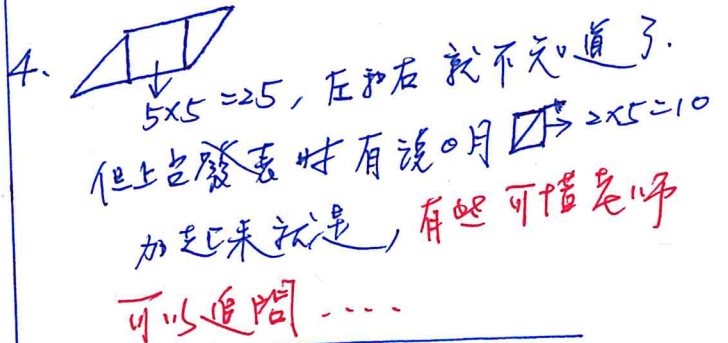 4、
5×5=25，左和右就不知道了.
但上台發表時有說明 2×5=10
加起來就是，有些可惜老師
可以追問....